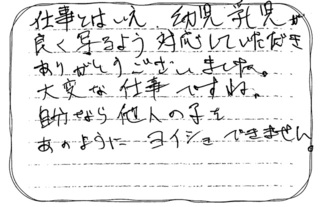 仕事とはいえ、幼児乳児が
良く写るよう対応していただき
ありがとうございましたね。
大変な仕事ですね。
自分なら他人の子を
あのようにヨイショできません。